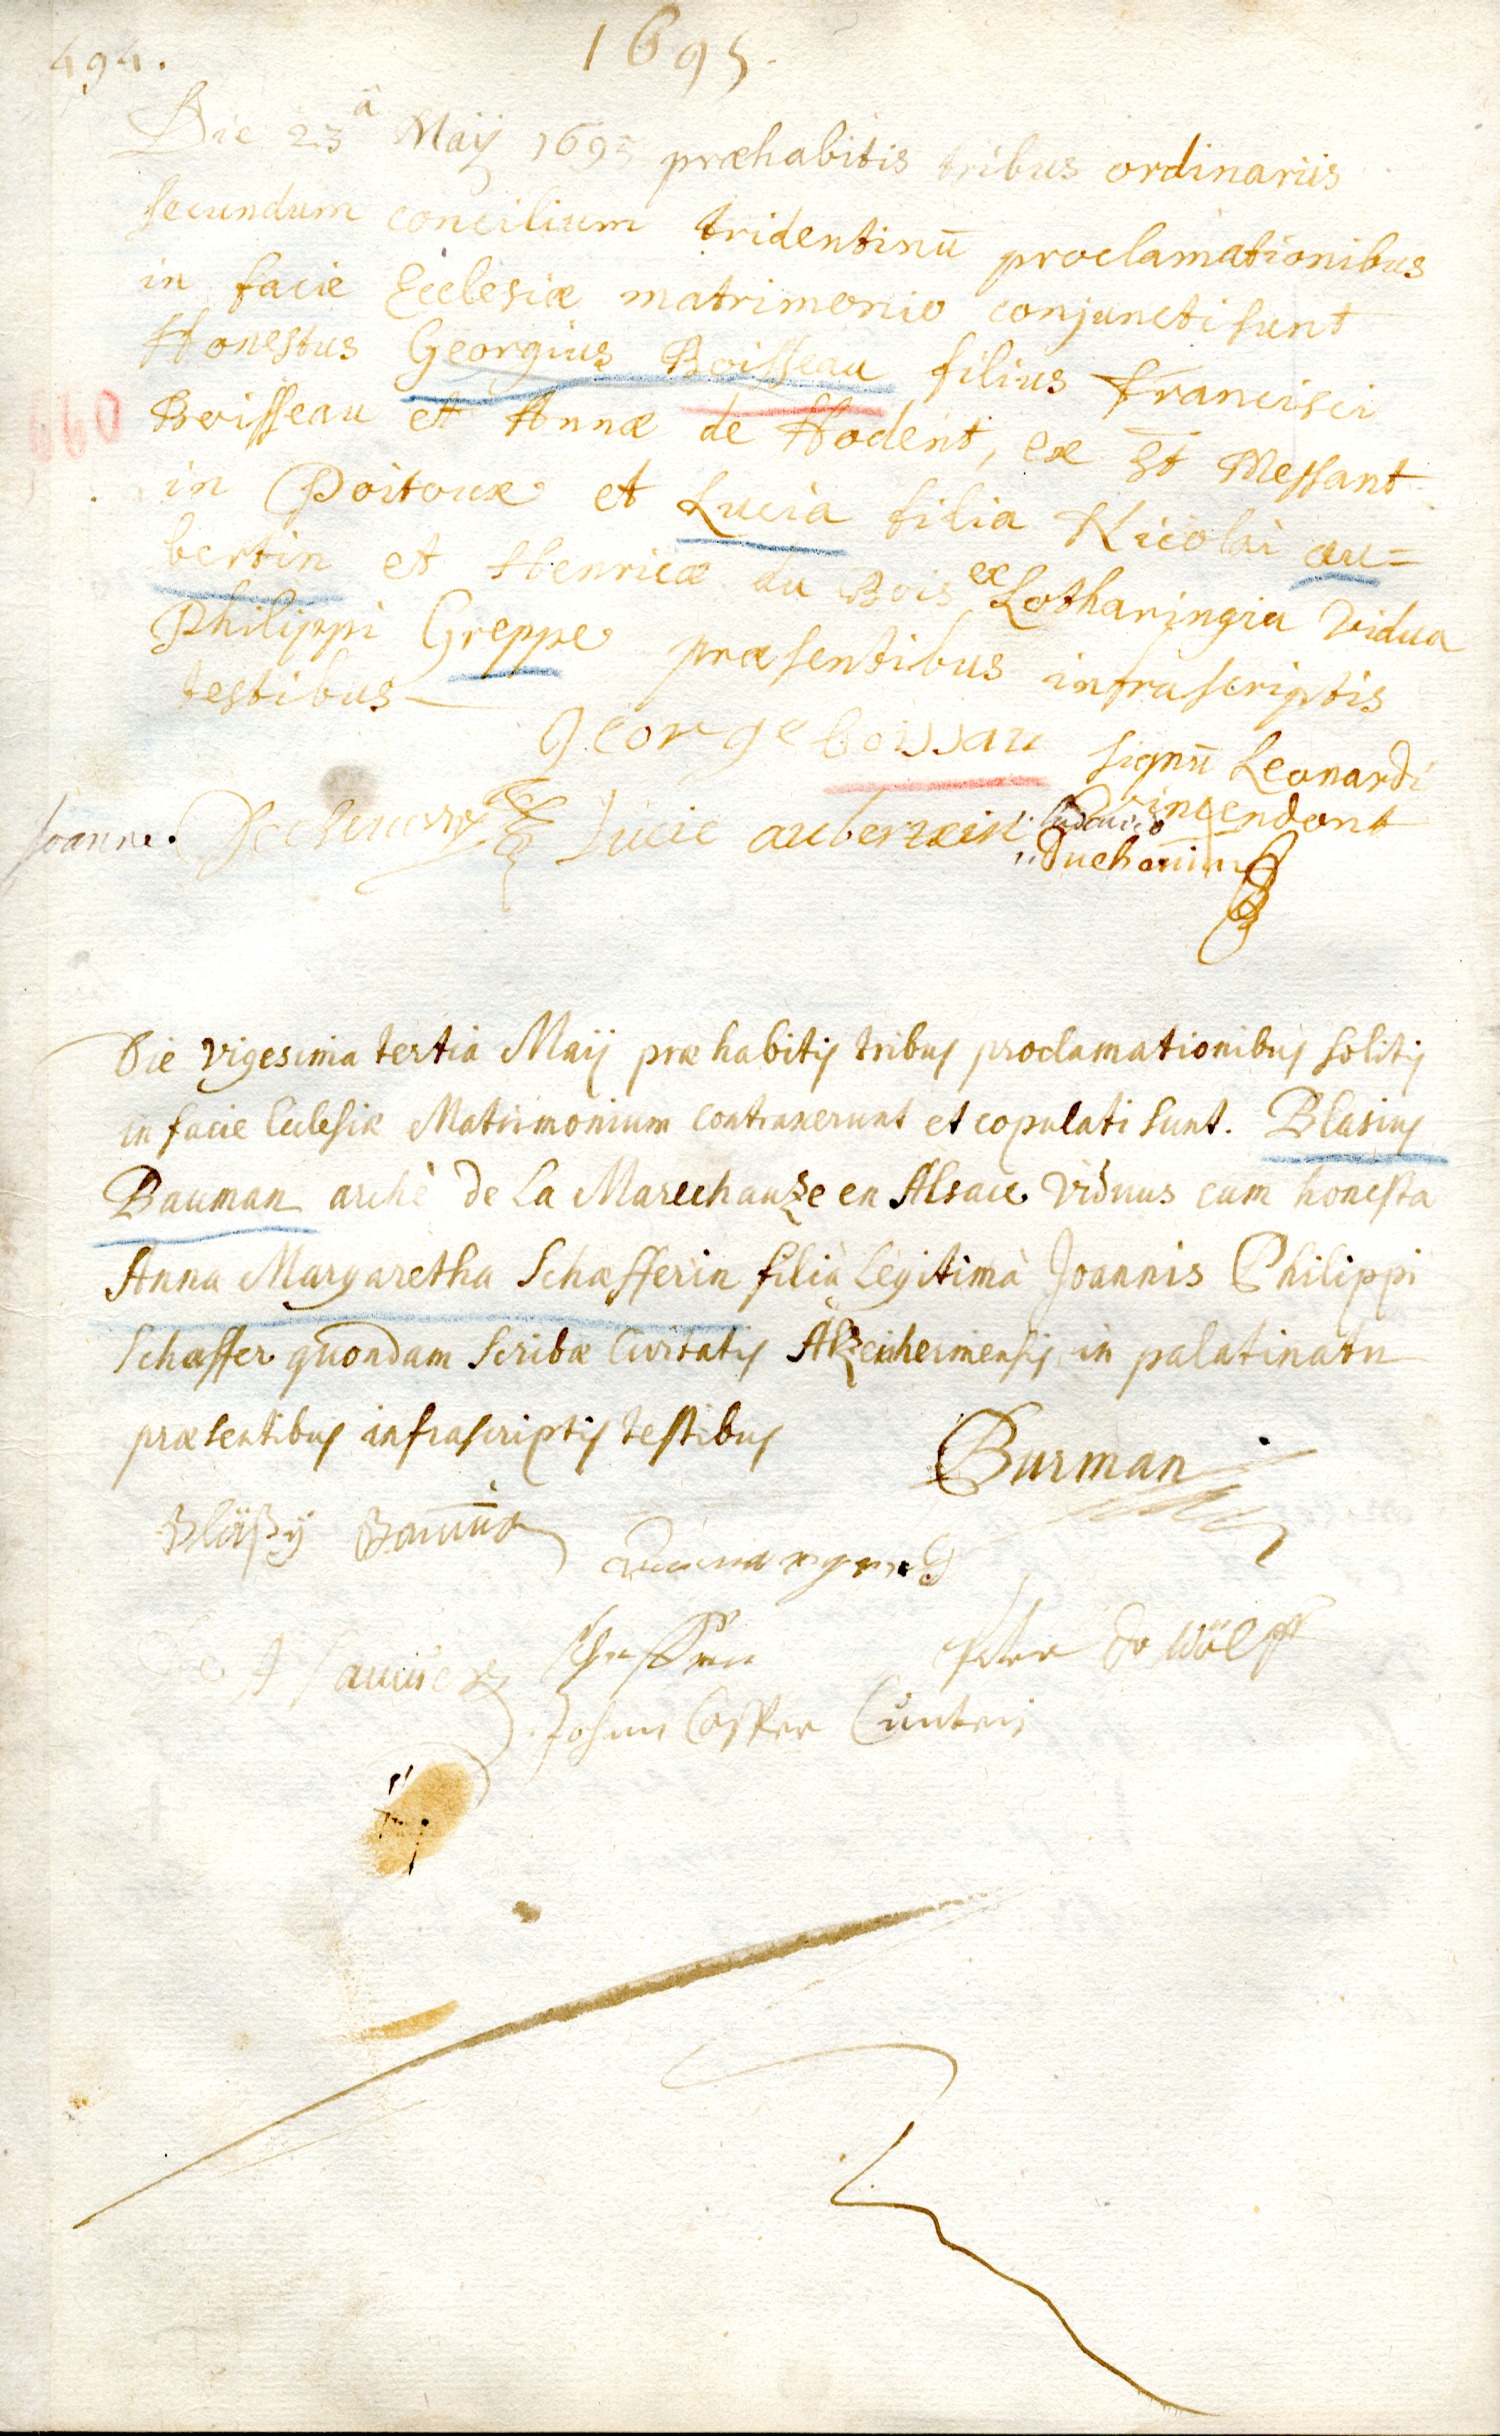 494.
1695.
Die 23â Maij 1695 præhabitis tribus ordinariis
secundum concilium tridentinū proclamationibus
in facie Ecclesiæ matrimonio conjuncti sunt
Honestus Georgius Boisseau filius francisci
660
Boisseau et Annæ de Hodent, ex St Messant
in Poitoux et Lucia filia Nicolai au=
bertin et Henricæ du Bois ex Lotharingia vidua
Philippi Greppe præsentibus infrascriptis
testibus
george boissau signū Leonardi
Joanne. Lucie aubertin ludovico vincendont
Duchemin
Die vigesima tertia Maij præhabitis tribus proclamationibus solitis
in facie Ecclesiæ Matrimonium contraxerunt et copulati sunt. Blasius
Bauman arché de La Marechausze en Alsace viduus cum honesta
Anna Margaretha Schæfferin filia legitima Joannis Philippi
Schæffer quondam scribæ Civitatis in palatinatu
præsentibus infrascriptis testibus
Burman
Bläsÿ
Peter de Wölff
Johann Casper